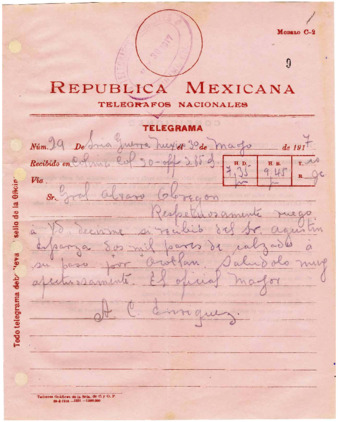 Modelo C-2
9
REPUBLICA MEXICANA
TELEGRAFOS NACIONALES
TELEGRAMA
Núm. 29 De Sria Guerra Mexico el 30 de Mayo de 1917.
Recibido en Colima Col 30
H. D. H. R.
7.35 9.45
Via
Sr. Gral Alvaro Obregon
Respetuosamente ruego
á Vd decirme si recibió del Sr Agustin
Esparza dos mil pares de calzado á
su paso por Ocotlan. Saludolo muy
afectuosamente. El oficial Mayor
A C Enriquez.
Todo telegrama debe llevar el sello de la Oficina